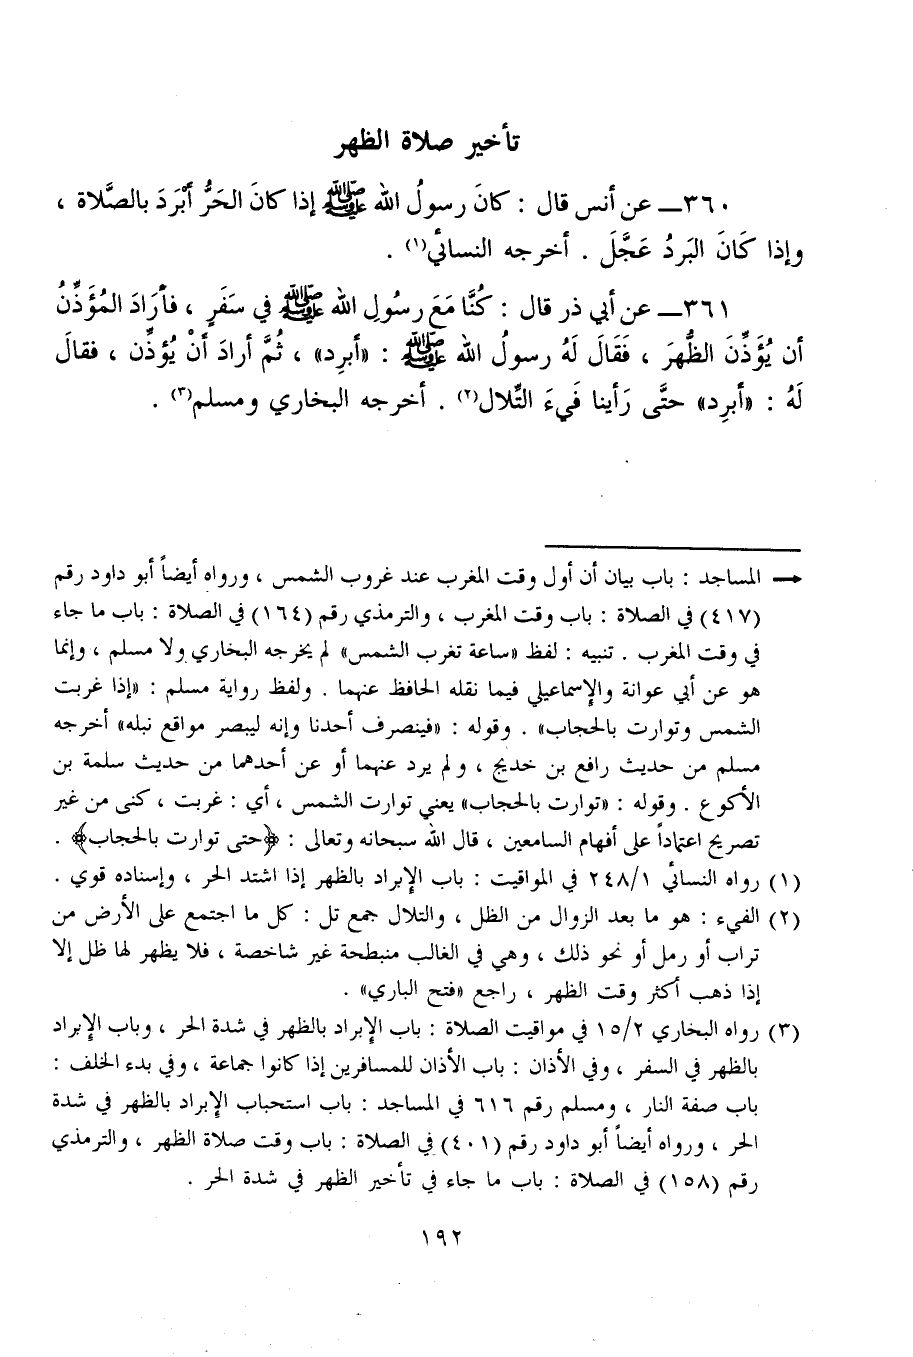 تأخير صلاة الظهر
٣٦٠ــ عن أنس قال : كانَ رسولُ الله ﷺ إذا كانَ الحَرُّ أَبْرَدَ بالصَّلاة ،
وإذا كَانَ البَردُ عَجَّلَ . أخرجه النسائي(١) .
٣٦١ــ عن أبي ذر قال : كُنَّا مَعَ رسُولِ الله ﷺ في سَفَرٍ ، فأرَادَ المُؤَذِّنُ
أن يُؤَذِّنَ الظُّهرَ ، فَقَالَ لَهُ رسولُ الله ﷺ : «أبرِد» ، ثُمَّ أرادَ أنْ يُؤذِّن ، فقالَ
لَهُ : «أبرِد» حتَّى رَأينا فَيءَ التِّلال(٢) . أخرجه البخاري ومسلم(٣) .
← المساجد : باب بيان أن أول وقت المغرب عند غروب الشمس ، ورواه أيضاً أبو داود رقم
(٤١٧) في الصلاة : باب وقت المغرب ، والترمذي رقم (١٦٤) في الصلاة : باب ما جاء
في وقت المغرب . تنبيه : لفظ «ساعة تغرب الشمس» لم يخرجه البخاري ولا مسلم ، وإنما
هو عن أبي عوانة والإسماعيلي فيما نقله الحافظ عنهما . ولفظ رواية مسلم : «إذا غربت
الشمس وتوارت بالحجاب» . وقوله : «فينصرف أحدنا وإنه ليبصر مواقع نبله» أخرجه
مسلم من حديث رافع بن خديج ، ولم يرد عنهما أو عن أحدهما من حديث سلمة بن
الأكوع . وقوله : «توارت بالحجاب» يعني توارت الشمس ، أي : غربت ، كنى من غير
تصريح اعتماداً على أفهام السامعين ، قال الله سبحانه وتعالى : ﴿حتى توارت بالحجاب﴾ .
(١) رواه النسائي ٢٤٨/١ في المواقيت : باب الإبراد بالظهر إذا اشتد الحر ، وإسناده قوي .
(٢) الفيء : هو ما بعد الزوال من الظل ، والتلال جمع تل : كل ما اجتمع على الأرض من
تراب أو رمل أو نحو ذلك ، وهي في الغالب منبطحة غير شاخصة ، فلا يظهر لها ظل إلا
إذا ذهب أكثر وقت الظهر ، راجع «فتح الباري» .
(٣) رواه البخاري ١٥/٢ في مواقيت الصلاة : باب الإبراد بالظهر في شدة الحر ، وباب الإبراد
بالظهر في السفر ، وفي الأذان : باب الأذان للمسافرين إذا كانوا جماعة ، وفي بدء الخلف :
باب صفة النار ، ومسلم رقم ٦١٦ في المساجد : باب استحباب الإبراد بالظهر في شدة
الحر ، ورواه أيضاً أبو داود رقم (٤٠١) في الصلاة : باب وقت صلاة الظهر ، والترمذي
رقم (١٥٨) في الصلاة : باب ما جاء في تأخير الظهر في شدة الحر .
١٩٢